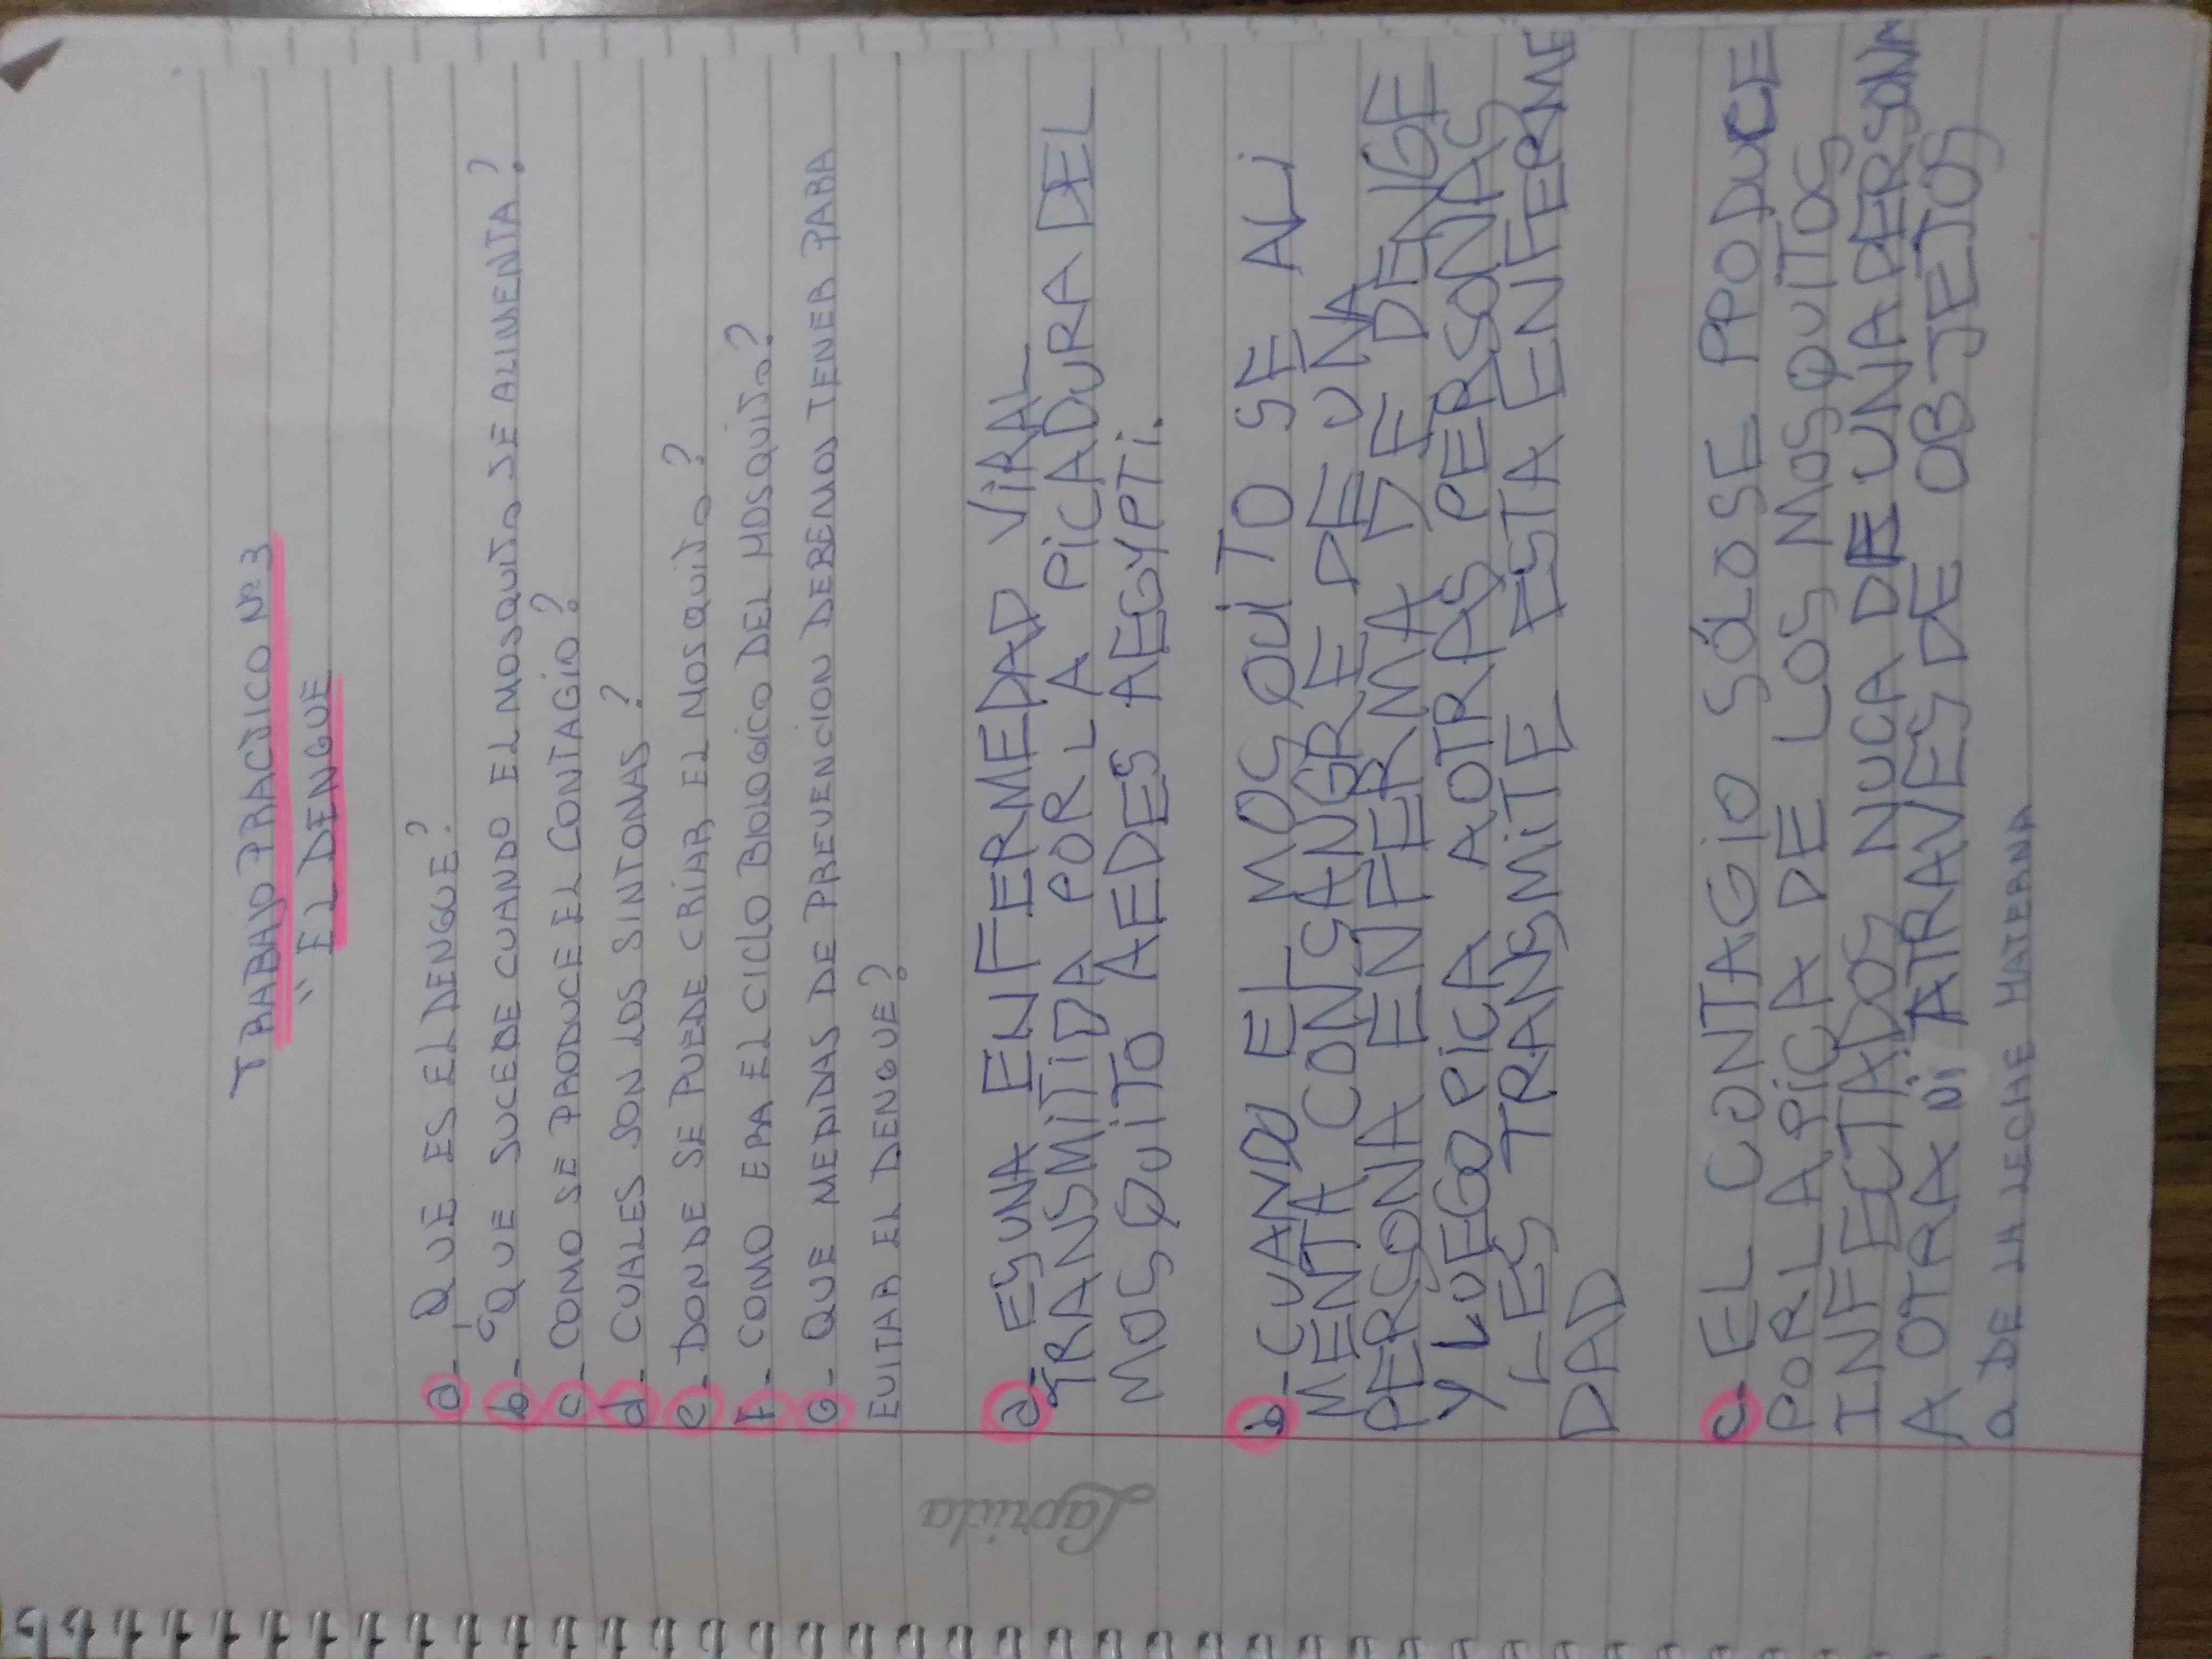 TRABAJO PRACTICO Nº 3
"EL DENGUE
a- ¿QUÉ ES EL DENGUE?
b- ¿QUE SUCEDE CUANDO EL MOSQUITO SE ALIMENTA?
c- COMO SE PRODUCE EL CONTAGIO?
d- CUALES SON LOS SINTOMAS?
e- DONDE SE PUEDE CRIAR EL MOSQUITO?
f- COMO ERA EL CICLO BIOLOGICO DEL MOSQUITO?
G- QUE MEDIDAS DE PREVENCION DEBEMOS TENER PARA
EVITAR EL DENGUE?
a- ES UNA ENFERMEDAD VIRAL
TRANSMITIDA POR LA PICADURA DEL
MOSQUITO AEDES AEGYPTI.
b- CUANDO EL MOSQUITO SE ALI
MENTA CON SANGRE DE UNA
PERSONA ENFERMA DE DENGE
Y LUEGO PICA A OTRAS PERSONAS
LES TRANSMITE ESTA ENFERME
DAD
c- EL CONTAGIO SÓLO SE PPODUCE
POR LA PICA DE LOS MOSQUITOS
INFECTADOS NUCA DE UNA PERSONA
A OTRA NI ATRAVES DE OBJETOS
O DE LA LECHE MATERNA
Laprida